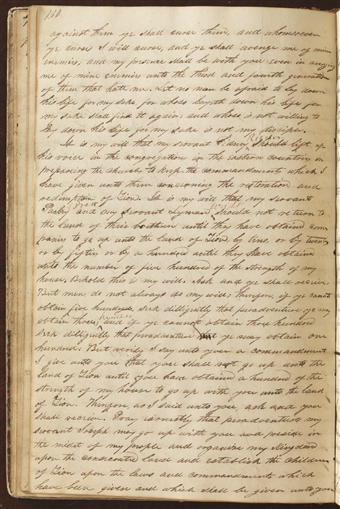 against them ye shall curse them, and whomsoever
ye curse I will curse, and ye shall avenge me of mine
enemies, and my presence shall be with you even in avenging
me of mine enemies unto the third and fourth generation
of them that hate me. Let no man be afraid to lay down
his life for my sake for whoso layeth down his life for
my sake shall find it again and whoso is not willing to
lay down his life for my sake is not my disciple.
It is my will that my servant Sidney Rigdon should lift up
his voice in the congregation in the eastern countries in
preparing the church to keep the commandments which I
have given unto them concerning the restoration and
redemption of Zion. It is my will that my servant
Parley Pratt and my servant Lyman should not return to
the land of their brethren until they have obtained com
panies to go up unto the land of Zion by tens or by twenties
or by fiftys or by a hundred until they have obtained
unto the number of five hundred of the strength of my
house. Behold this is my will. Ask and ye shall receive.
But men do not always do my will, therefore, if ye cannot
obtain five hundred, seek diligently that peradventure ye may
obtain three hundred and if ye cannot obtain three hundred
seek diligently that peradventure ye may obtain one
hundred. But verily I say unto you a commandment
I give unto you that you shall not go up unto the
land of Zion until you have obtained a hundred of the
strength of my house to go up with you unto the land
of Zion. Therefore as I said unto you, ask and you
shall receive. Pray earnestly that peradventure my
servant Joseph may go up with you and preside in
the midst of my people, and organize my Kingdom
upon the consecrated land and establish the children
of Zion upon the laws and commandments which
have been given and which shall be given unto you